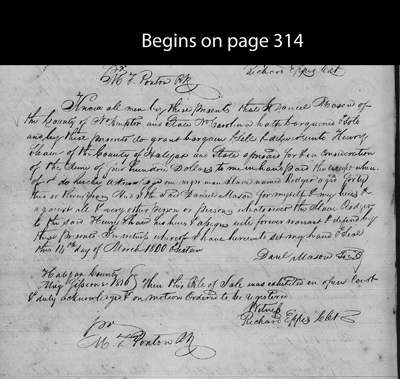 Begins on page 314
M. T. Ponton PR
Richard Eppes Clk
Know all men by these presents that I Daniel Mason of
the County of N. Hampton and State N. Carolina hath bargained & sold
and by these presents do grant bargain Sell & deliver unto Henry
Shaw of the County of Halifax and State aforesaid for & in consideration
of the Sum of four hundred Dollars to me in hand paid the receipt where
of I do hereby acknowledge one negro man slave named Rodger aged forty
three or I the said Daniel Mason for myself & my heirs &
against all & every other person or persons whatsoever the Slave Rodger
to the said Henry Shaw his heirs & assigns will forever warrant & defend by
these presents In witness whereof I have hereunto set my hand & Seal
this 14th day of March 1800
Danl Mason Seal
Halifax County
May Session 1816 Then this Bile of Sale was exhibited in open Court
& duly acknowledged on motion Ordered to be registered
Witness
Richard Eppes Clk
for
M. T. Ponton PR